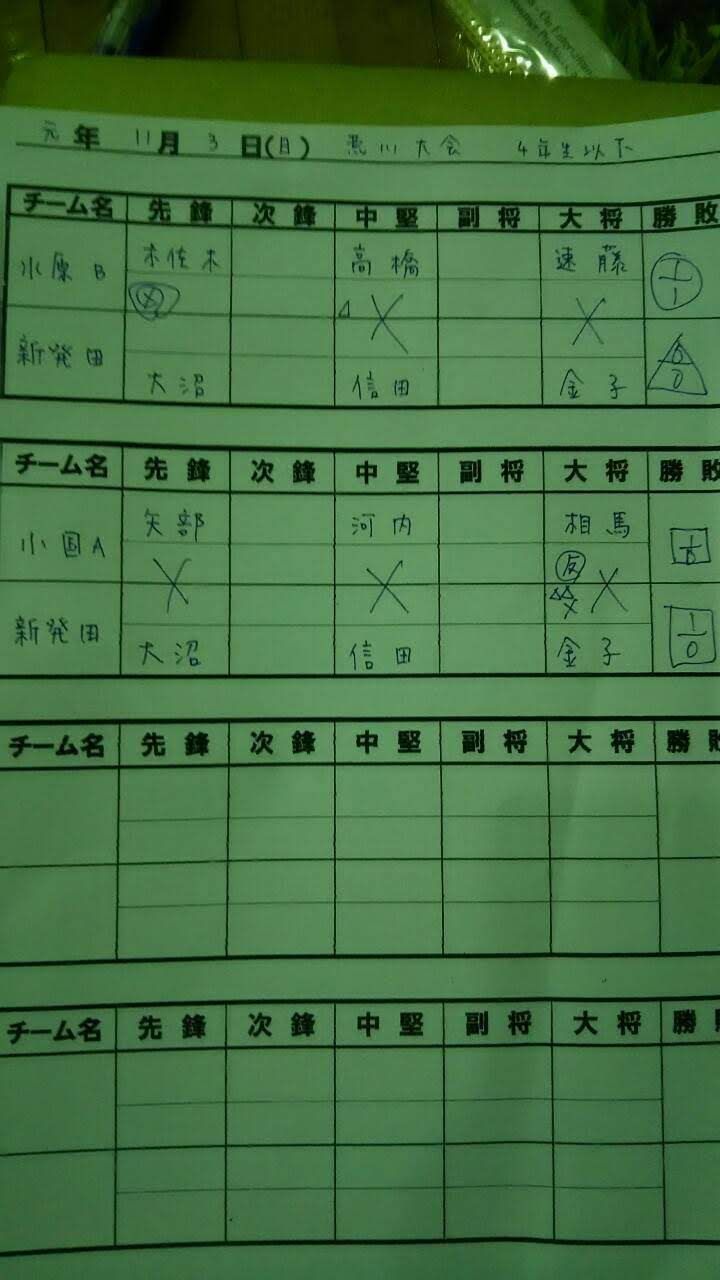 元年 11月 3日(日) 荒川大会 4年生以下
チーム名 先鋒 次鋒 中堅 副将 大将 勝敗
水原B 木佐木 高橋 遠藤 1/1
メ △ X X
新発田 大沼 信田 金子 0/0
チーム名 先鋒 次鋒 中堅 副将 大将 勝敗
小国A 矢部 河内 相馬
X X 反 X
△△
新発田 大沼 信田 金子 1/0
チーム名 先鋒 次鋒 中堅 副将 大将 勝敗
チーム名 先鋒 次鋒 中堅 副将 大将 勝